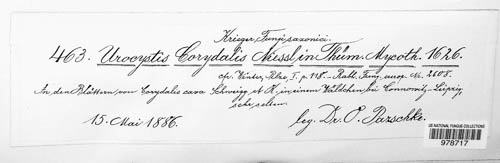 Krieger, Fungi saxonici.
463. Urocystis Corydalis Niessl in Thüm. Mycoth. 1626.
cfr. Winter, Pilze I. p. 118. — Rabh. Fung. europ. No. 2608.
An den Blättern von Corydalis cava Schweigg. et K. in einem Wäldchen bei Connewitz-Leipzig
sehr selten.
15. Mai 1886. leg. Dr. O. Pazschke.
US NATIONAL FUNGUS COLLECTIONS
978717